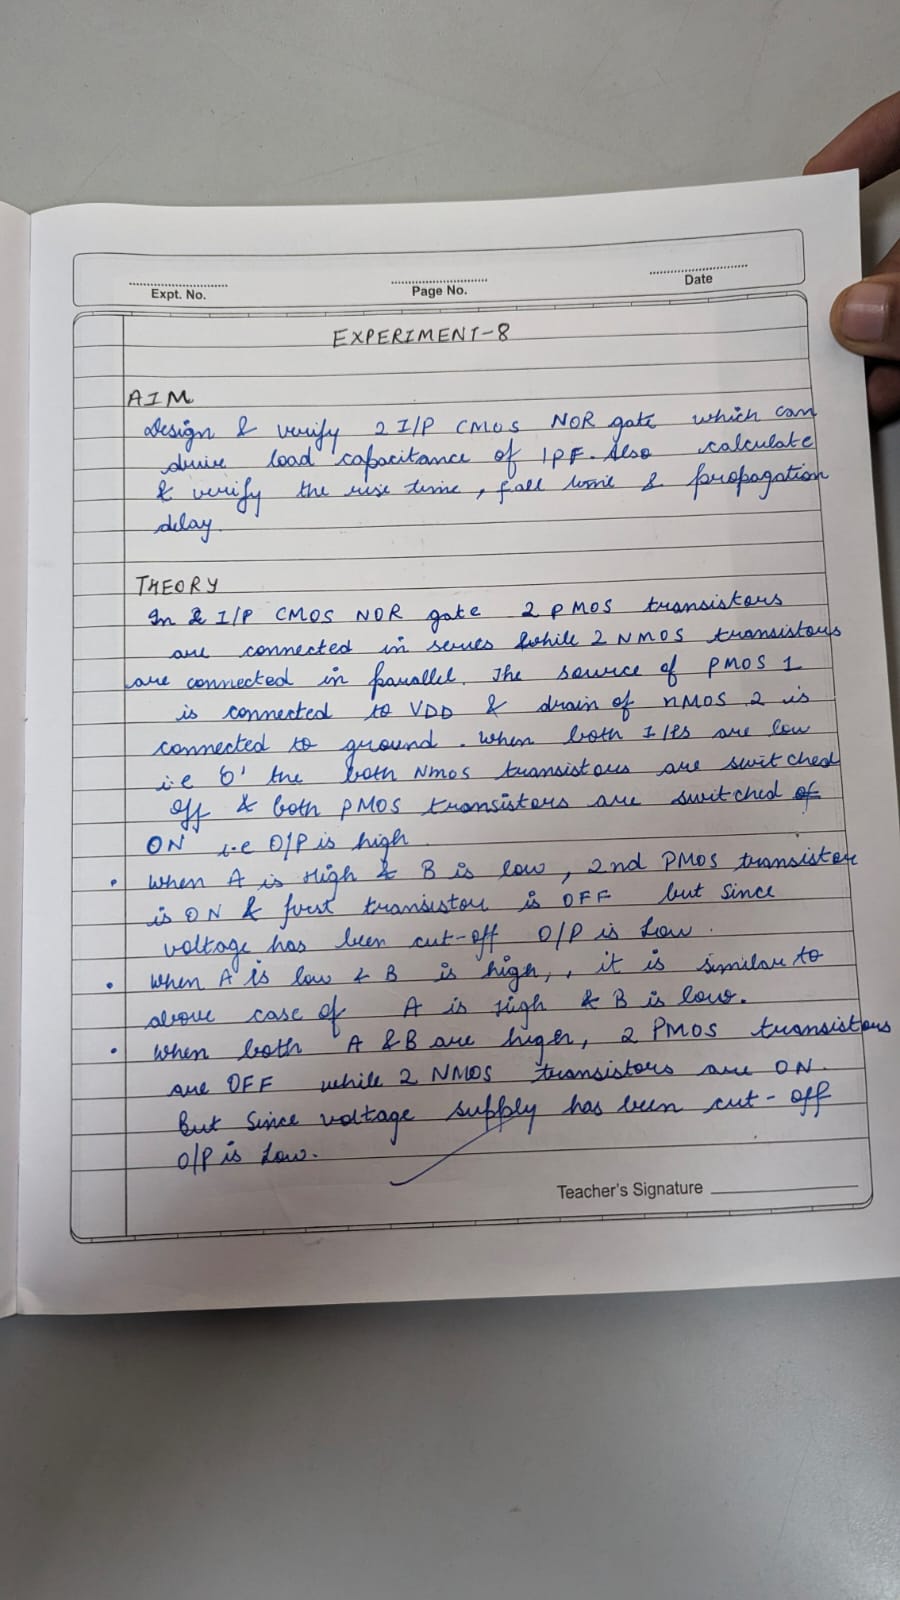 Expt. No.
Page No.
Date
EXPERIMENT-8
AIM
Design & verify 2 I/P CMOS NOR gate which can
drive load capacitance of 1PF. Also calculate
& verify the rise time, fall time & propagation
delay.
THEORY
In 2 I/P CMOS NOR gate 2 PMOS transistors
are connected in series while 2 NMOS transistors
are connected in parallel. The source of PMOS 1
is connected to VDD & drain of nMOS 2 is
connected to ground. When both I/Ps are low
i.e 0' the both Nmos transistors are switched
off & both PMOS transistors are switched of
ON i.e O/P is high
• When A is High & B is low, 2nd PMOS transistor
is ON & first transistor is OFF but since
voltage has been cut-off O/P is Low.
• When A is low & B is high,, it is similar to
above case of A is High & B is low.
• When both A & B are higher, 2 PMOS transistors
are OFF while 2 NMOS transistors are ON.
But Since voltage supply has been cut-off
O/P is Low.
Teacher's Signature